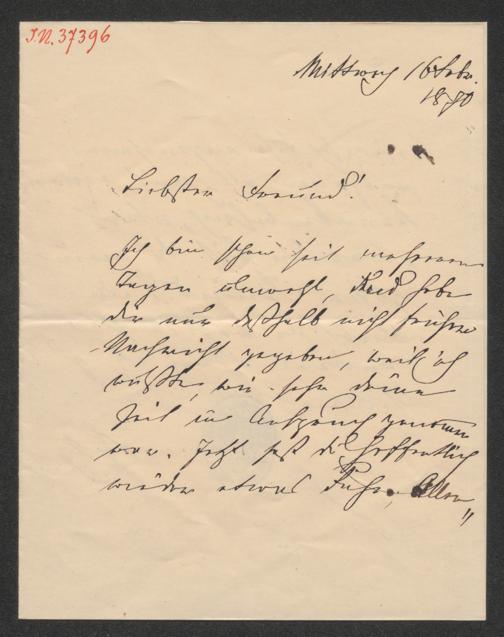 I.N. 37396
Mittwoch 16 Febr.
1870
Liebster Freund!
Ich bin schon seit mehreren
Tagen unwohl, und habe
dir nur deßhalb nicht früher
Nachricht gegeben, weil ich
wußte, wie sehr deine
Zeit in Anspruch genommen
war. Jetzt hast du hoffentlich
wieder etwas Ruhe,